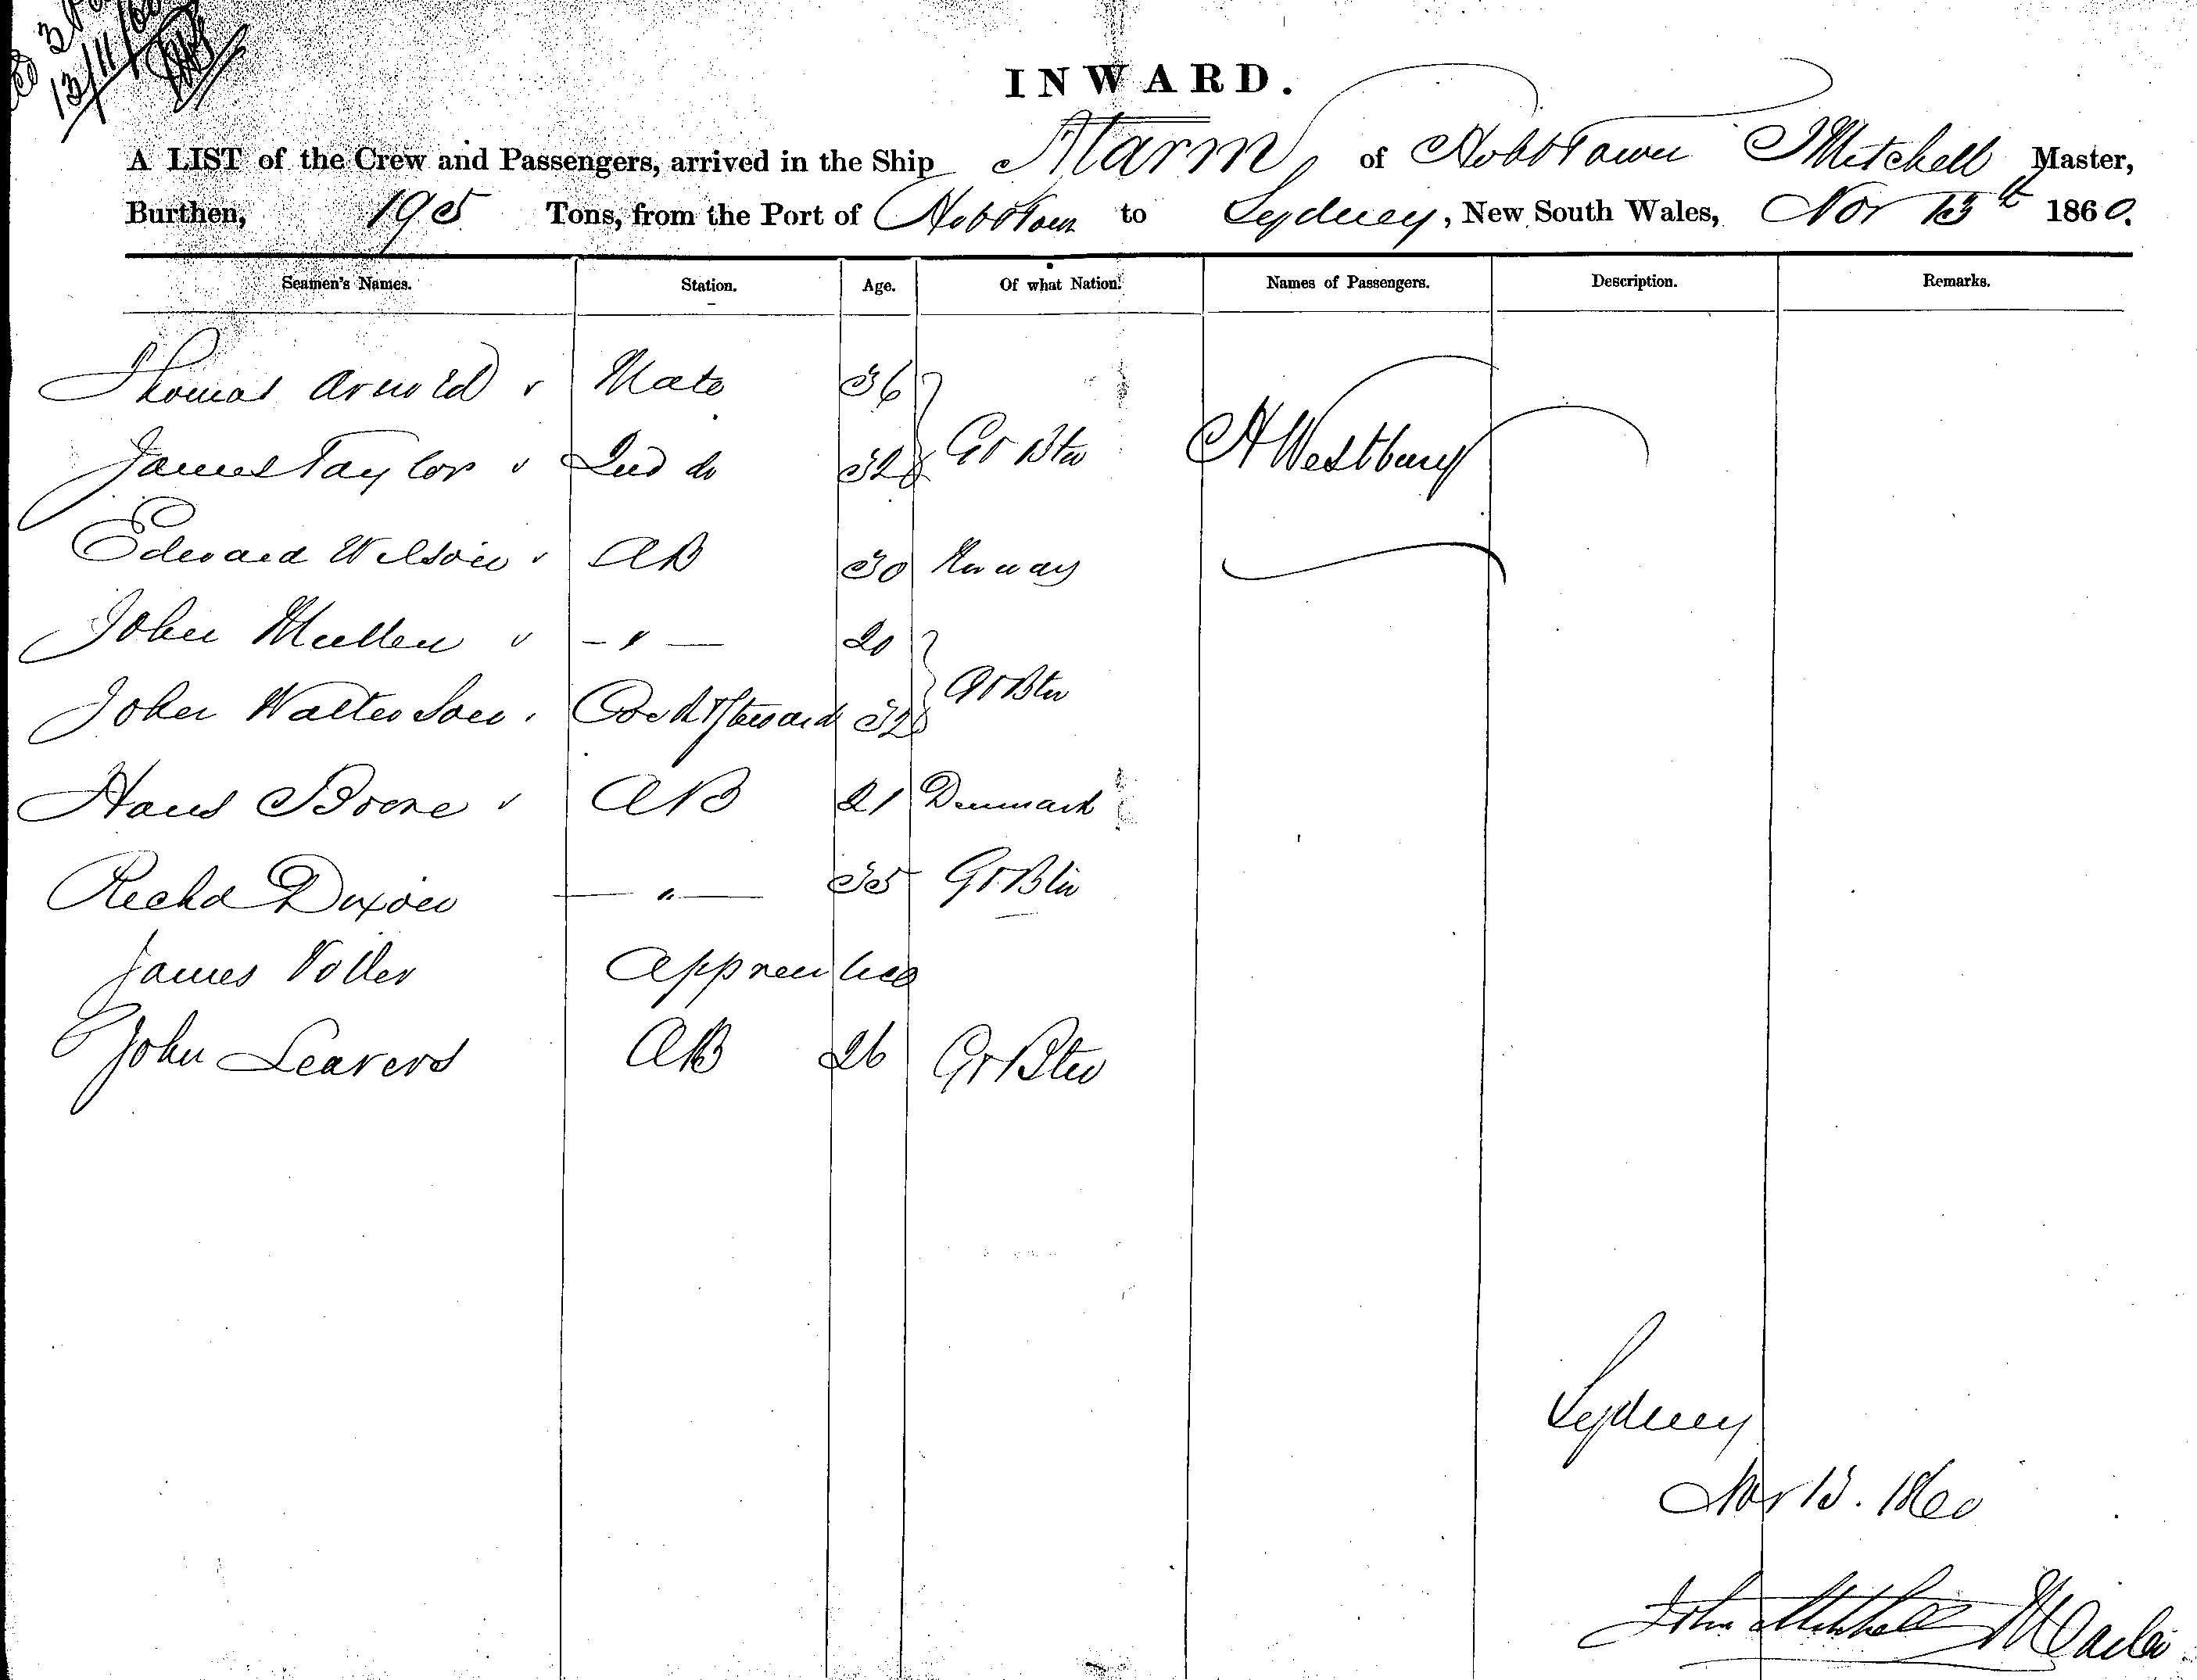 13/11/60
INWARD.
A LIST of the Crew and Passengers, arrived in the Ship Alarm of Hobt Town J Mitchell Master,
Burthen, 195 Tons, from the Port of Hobt Town to Sydney, New South Wales, Nov 13th 1860.
Seamen's Names. Station. Age. Of what Nation. Names of Passengers. Description. Remarks.
Thomas Arnold Mate 36
James Taylor 2nd do 32 Gt Btn A Westbury
Edward Wilson AB 30 Norway
John Mullen - " - 20
John Walterson Cook & Steward 32 Gt Btn
Hans Boore AB 21 Denmark
Richd Dixon - " - 35 Gt Btn
James Voller Apprentice
John Leavers AB 26 Gt Btn
Sydney
Nov 13. 1860
John Mitchell Master